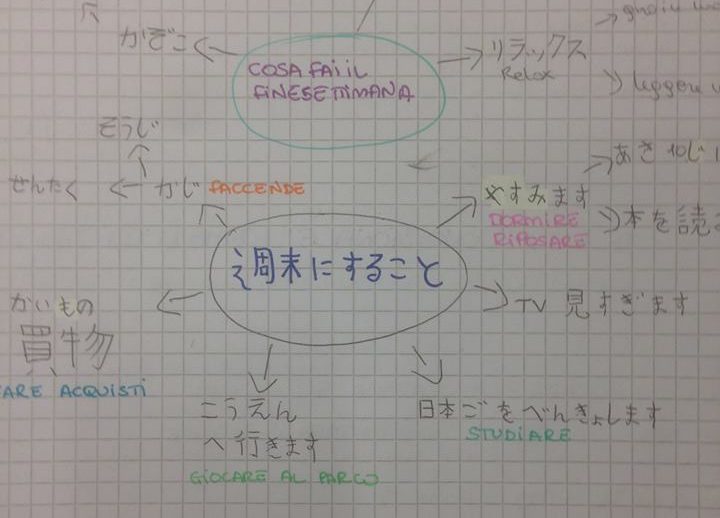 かぞこ
COSA FAI IL
FINESETTIMANA
リラックス
Relax
leggere
そうじ
せんたく
かじ FACCENDE
やすみます
DORMIRE
RIPOSARE
あき
本を読
週末にすること
かいもの
買物
ARE ACQUISTI
TV 見すぎます
こうえん
へ行きます
GIOCARE AL PARCO
日本ごをべんきょします
STUDIARE